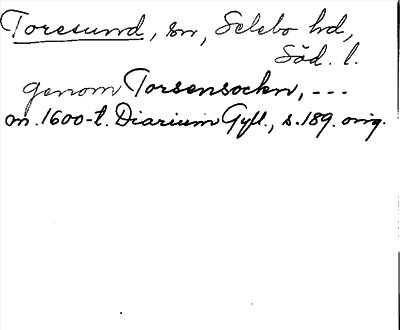 Toresund, sn, Selebo hd,
Söd. l.
genom Torsensockn, ---
on. 1600-t. Diarium Gyll., s. 189. orig.